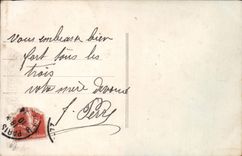 vous embrasse bien
fort tous les
trois
votre mère dévouée
J. Perry
PARIS